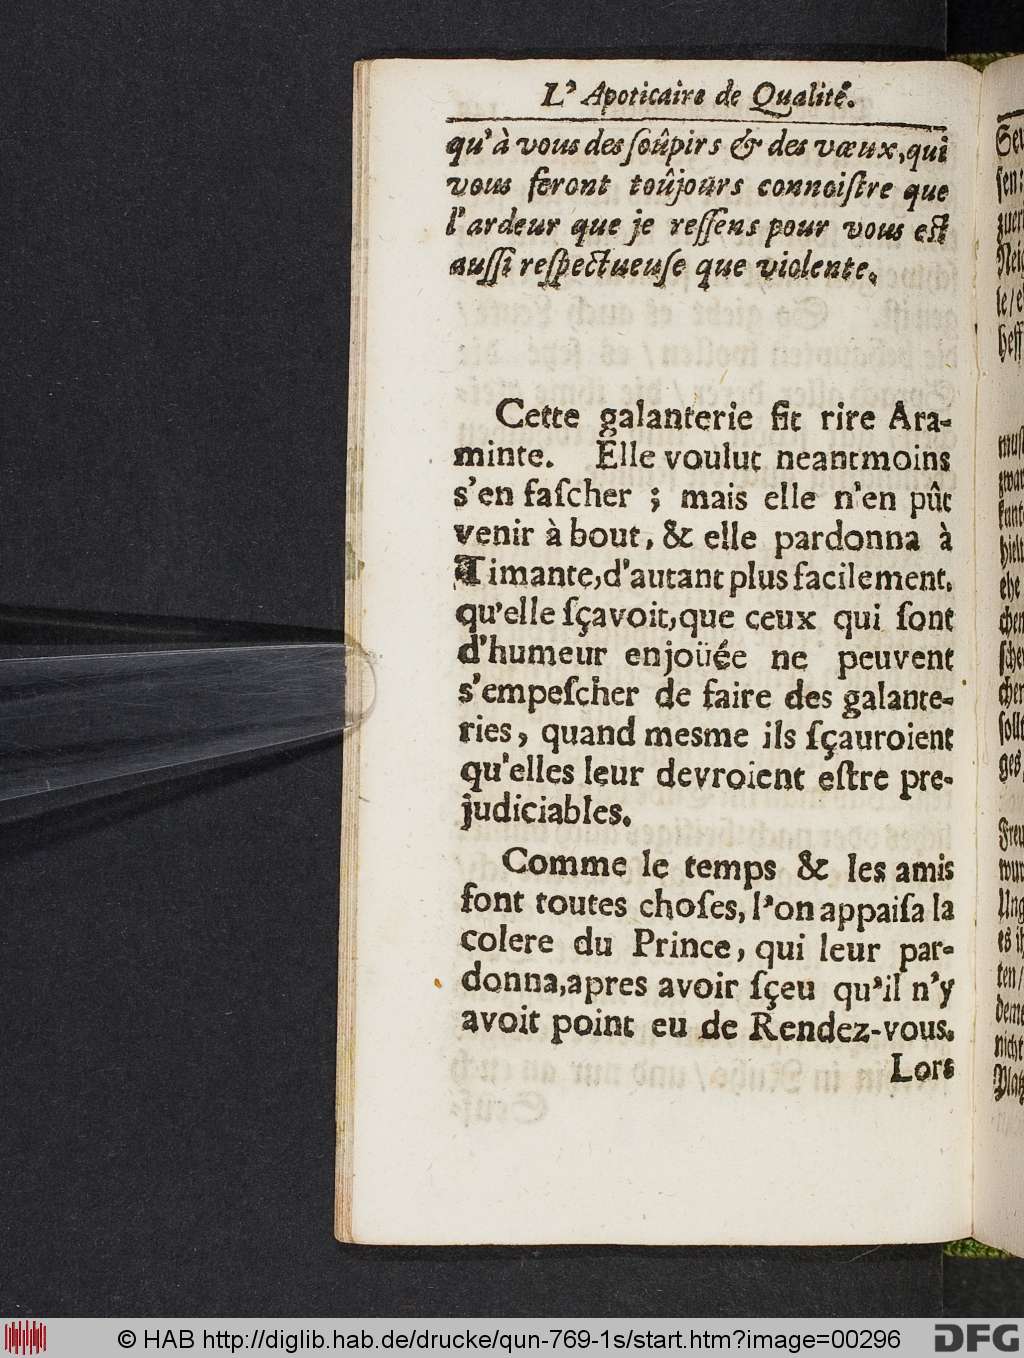 L'Apoticaire de Qualité.
qu'à vous des ſoûpirs & des vœux, qui
vous feront toûjours connoiſtre que
l'ardeur que je reſſens pour vous est
auſſi reſpectueuſe que violente.
Cette galanterie fit rire Ara-
minte. Elle voulut neantmoins
s'en faſcher ; mais elle n'en pût
venir à bout, & elle pardonna à
Timante, d'autant plus facilement.
qu'elle ſçavoit, que ceux qui ſont
d'humeur enjoüée ne peuvent
s'empeſcher de faire des galante-
ries, quand mesme ils ſçauroient
qu'elles leur devroient eſtre pre-
judiciables.
Comme le temps & les amis
font toutes choſes, l'on appaiſa la
colere du Prince, qui leur par-
donna, apres avoir ſçeu qu'il n'y
avoit point eu de Rendez-vous.
Lors
© HAB http://diglib.hab.de/drucke/qun-769-1s/start.htm?image=00296
DFG